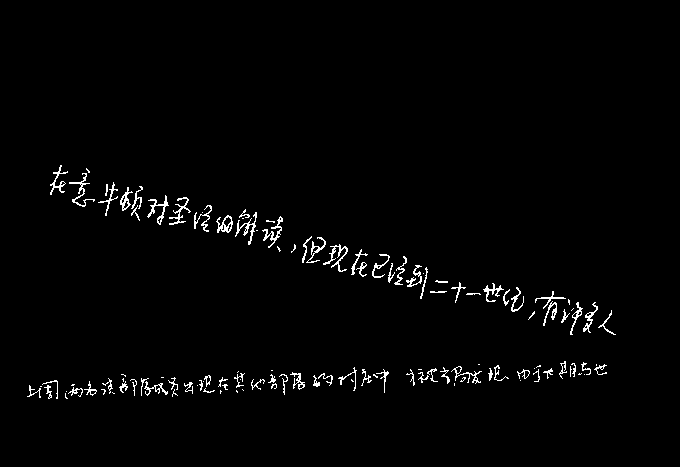 在意牛顿对圣经的解读，但现在已经到二十一世纪，有许多人
上周两名该部落成员出现在其他部落的村庄中 才被当局发现 由于长期与世